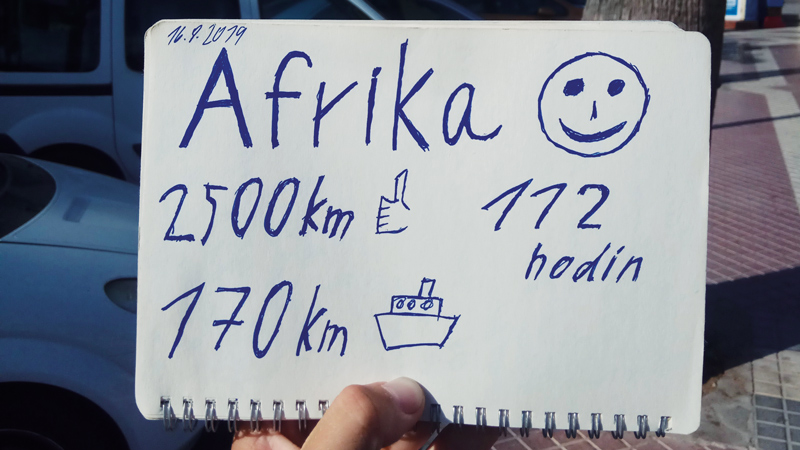 16.9.2019
Afrika
2500km
112
hodin
170km